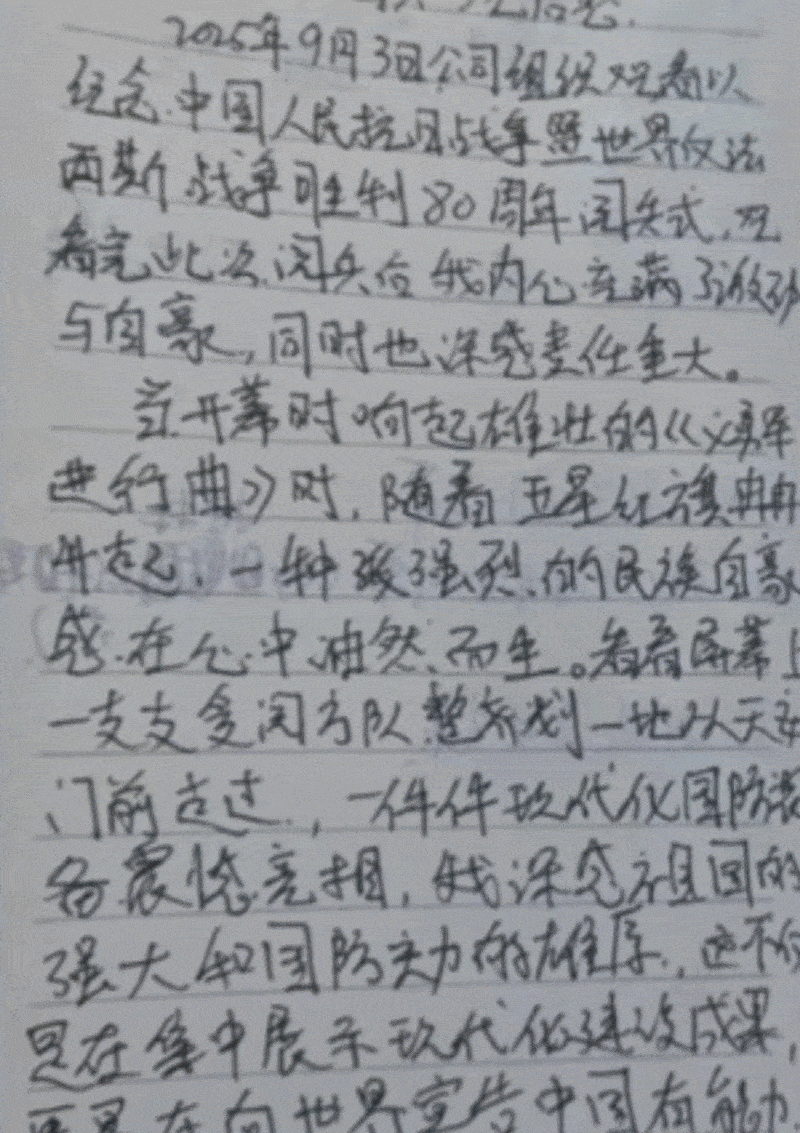 2025年9月3日公司组织观看以
纪念中国人民抗日战争暨世界反法
西斯战争胜利80周年阅兵式，观
看完此次阅兵后我内心充满了激动
与自豪，同时也深感责任重大。
当开幕时响起雄壮的《义勇军
进行曲》时，随着五星红旗冉冉
升起，一种强烈的民族自豪
感在心中油然而生。看着屏幕上
一支支受阅方队整齐划一地从天安
门前走过，一件件现代化国防装
备震憾亮相，我深感祖国的
强大和国防实力的雄厚，这不仅
是在集中展示现代化建设成果，
更是在向世界宣告中国有能力